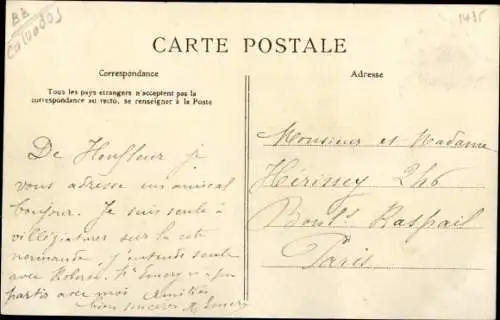 BB
Calvados
1495
CARTE POSTALE
Correspondance
Tous les pays étrangers n'acceptent pas la
correspondance au recto, se renseigner à la Poste
De Honfleur je
vous adresse un amical
bonjour. Je suis seule à
villégiaturer sur la côte
normande. J'entends seule
avec
partir avec moi Amitiés
bien sincères
Adresse
Monsieur et Madame
Hérissey 246
Boul.d Raspail
Paris